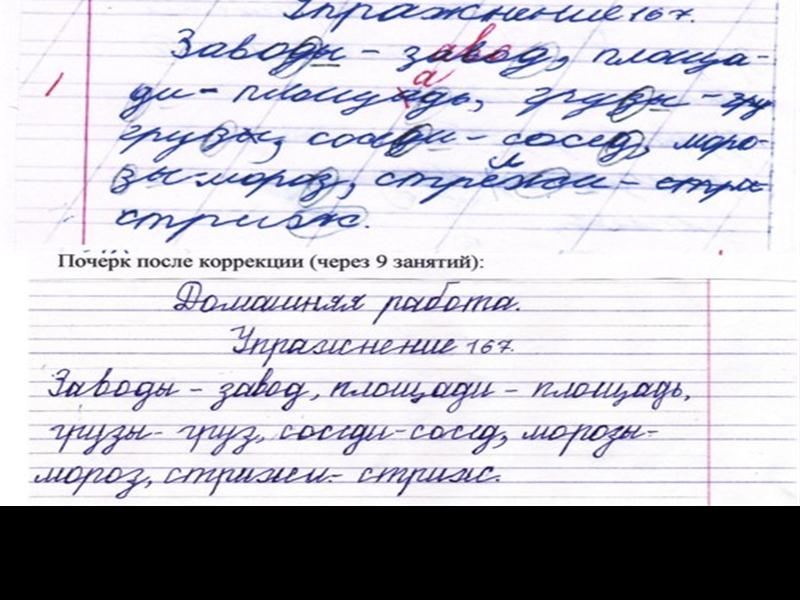 Упражнение 167.
Заводы - завод, площа-
ди - площадь, грузы - гру
грузы, соседи - сосед, моро-
зы-мороз, стрижи - стри-
стриж.
Почерк после коррекции (через 9 занятий):
Домашняя работа.
Упражнение 167.
Заводы - завод, площади - площадь,
грузы - груз, соседи - сосед, морозы-
мороз, стрижи - стриж.